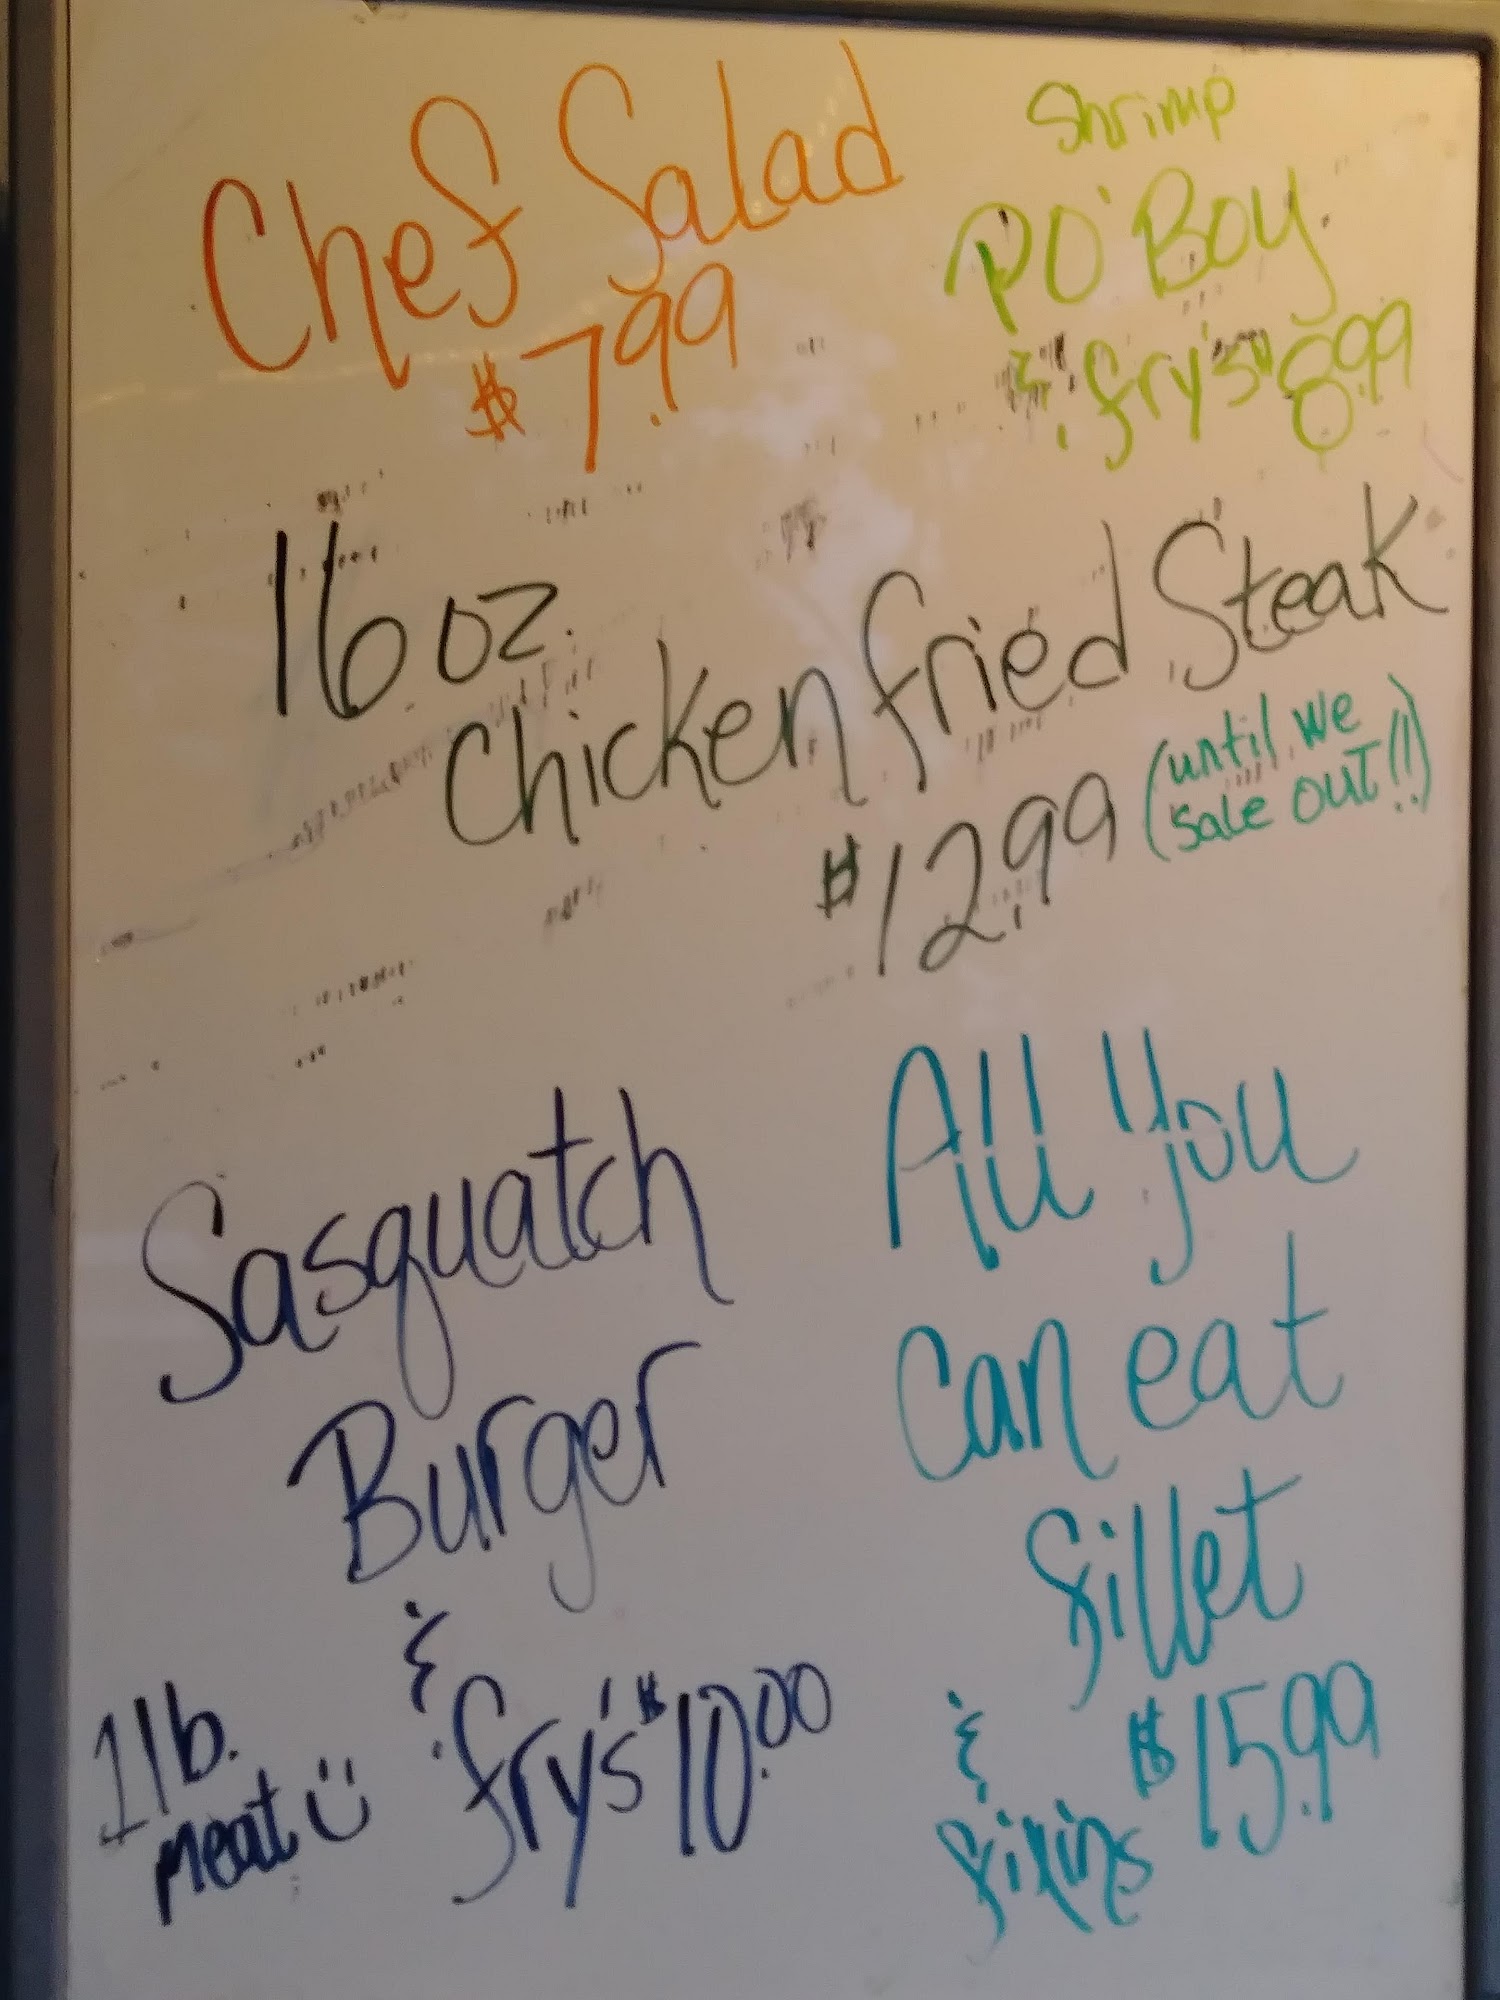 Chef Salad
$7.99
Shrimp
PO'Boy
& fry's $8.99
16 oz.
Chicken fried Steak
$12.99 (until we
sale out!!)
Sasquatch
Burger
&
fry's $10.00
1 lb.
meat
All You
can eat
fillet
& $15.99
fixins